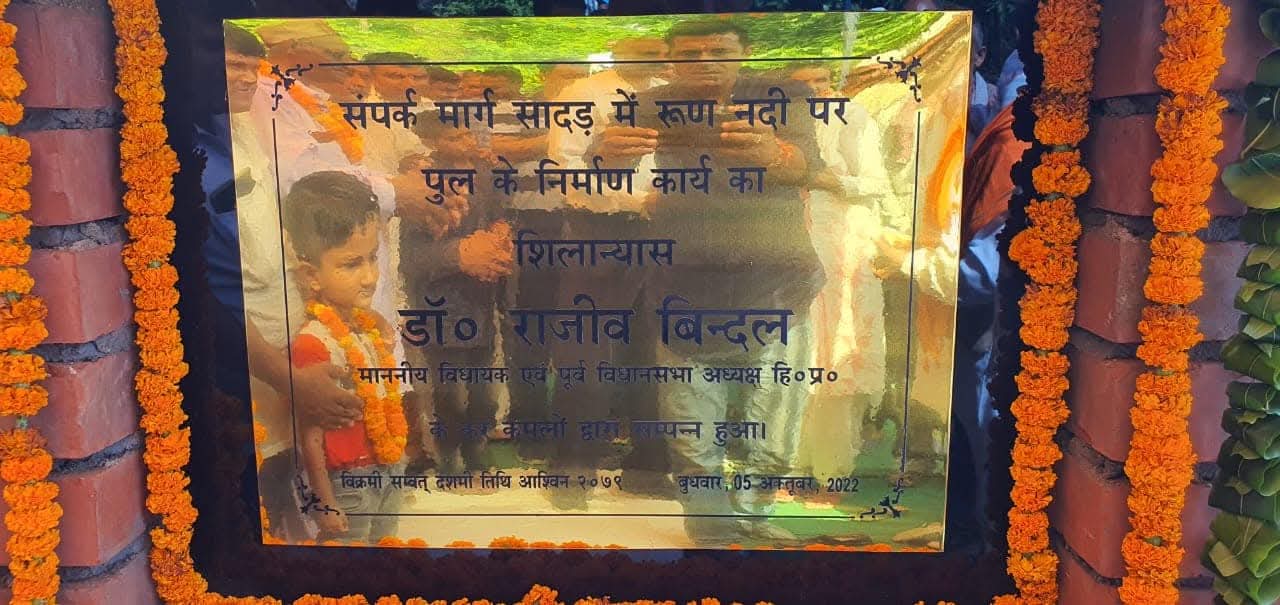 संपर्क मार्ग सादड़ में रूण नदी पर
पुल के निर्माण कार्य का
शिलान्यास
डॉ० राजीव बिन्दल
माननीय विधायक एवं पूर्व विधानसभा अध्यक्ष हि०प्र०
के कर कमलों द्वारा सम्पन्न हुआ।
विक्रमी सम्वत् दशमी तिथि आश्विन २०७९ बुधवार, 05 अक्तूबर, 2022